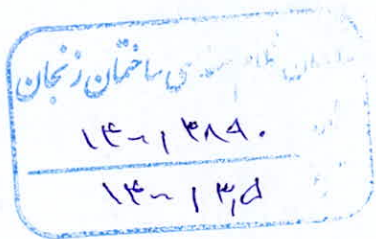 سازمان نظام مهندسی ساختمان زنجان
۱۴۰۰/۳۸۵۰
۱۴۰۰/۳/۵